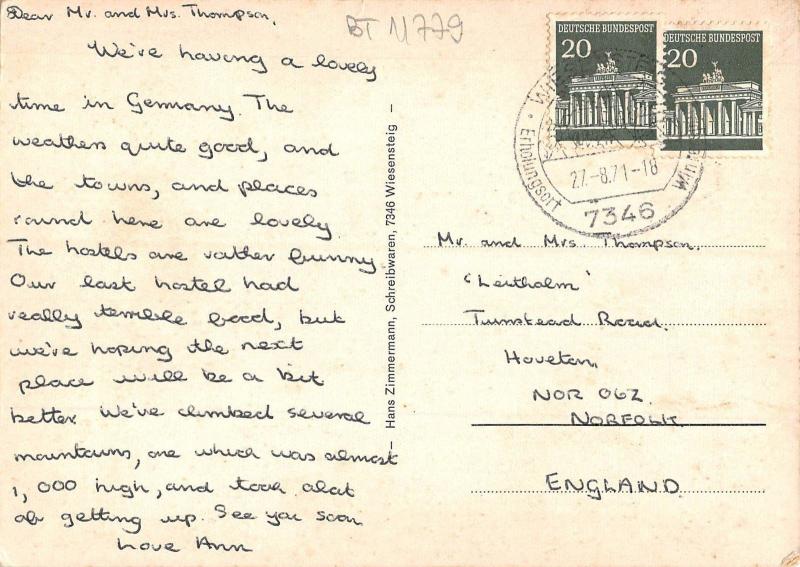 Dear Mr. and Mrs. Thompson,
We've having a lovely
time in Germany. The
weathers quite good, and
the towns, and places
round here are lovely.
The hostels are rather funny
Our last hostel had
really terrible food, but
we're hoping the next
place will be a bit
better. We've climbed several
mountains, one which was almost
1,000 high, and took alot
of getting up. See you soon
Love Ann
BT 11779
- Hans Zimmermann, Schreibwaren, 7346 Wiesensteig -
DEUTSCHE BUNDESPOST
20
DEUTSCHE BUNDESPOST
20
Erholungsort
27.-8.71-18
7346
Mr. and Mrs. Thompson.
"Leitholm"
Tunstead Road.
Hoveton,
NOR 06Z
NORFOLK
ENGLAND